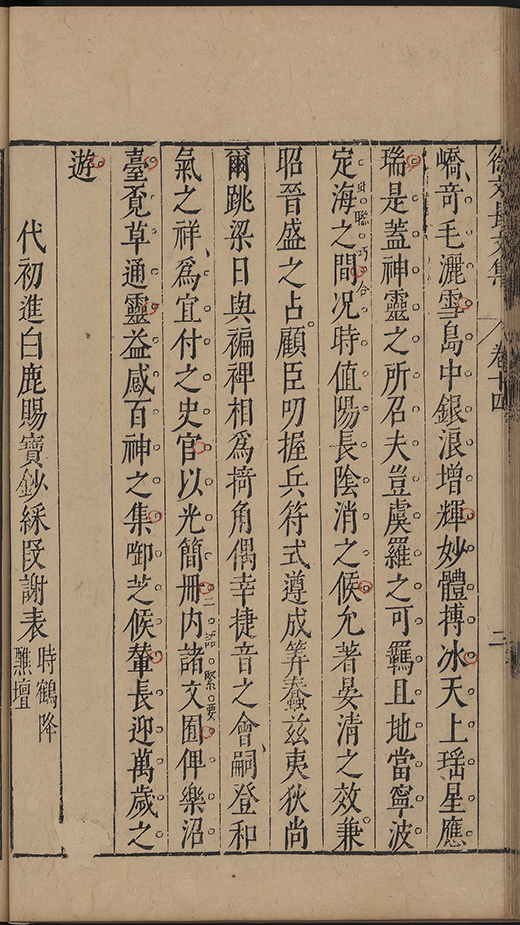 徐文長文集 卷十四 二
嶠竒毛灑雪島中銀浪增輝妙體搏冰天上瑶星應
瑞是蓋神靈之所召夫豈虞羅之可羈且地當寧波
聮巧合
定海之間况時值陽長陰消之候允著晏清之效兼
昭晉盛之占顧臣叨握兵符式遵成筭蠢兹夷狄尚
爾跳梁日與褊裨相爲掎角偶幸捷音之會嗣登和
二語緊要
氣之祥爲宜付之史官以光簡冊内諸文囿俾樂沼
臺覔草通靈益感百神之集啣芝候輦長迎萬歲之
遊
代初進白鹿賜寶鈔綵段謝表
時鶴降
醮壇